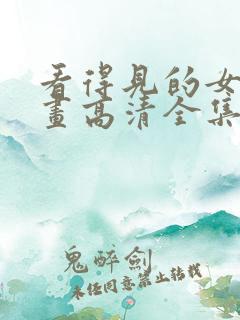 看得见的女
画高清全集
鬼醉劍
未经同意禁止转载